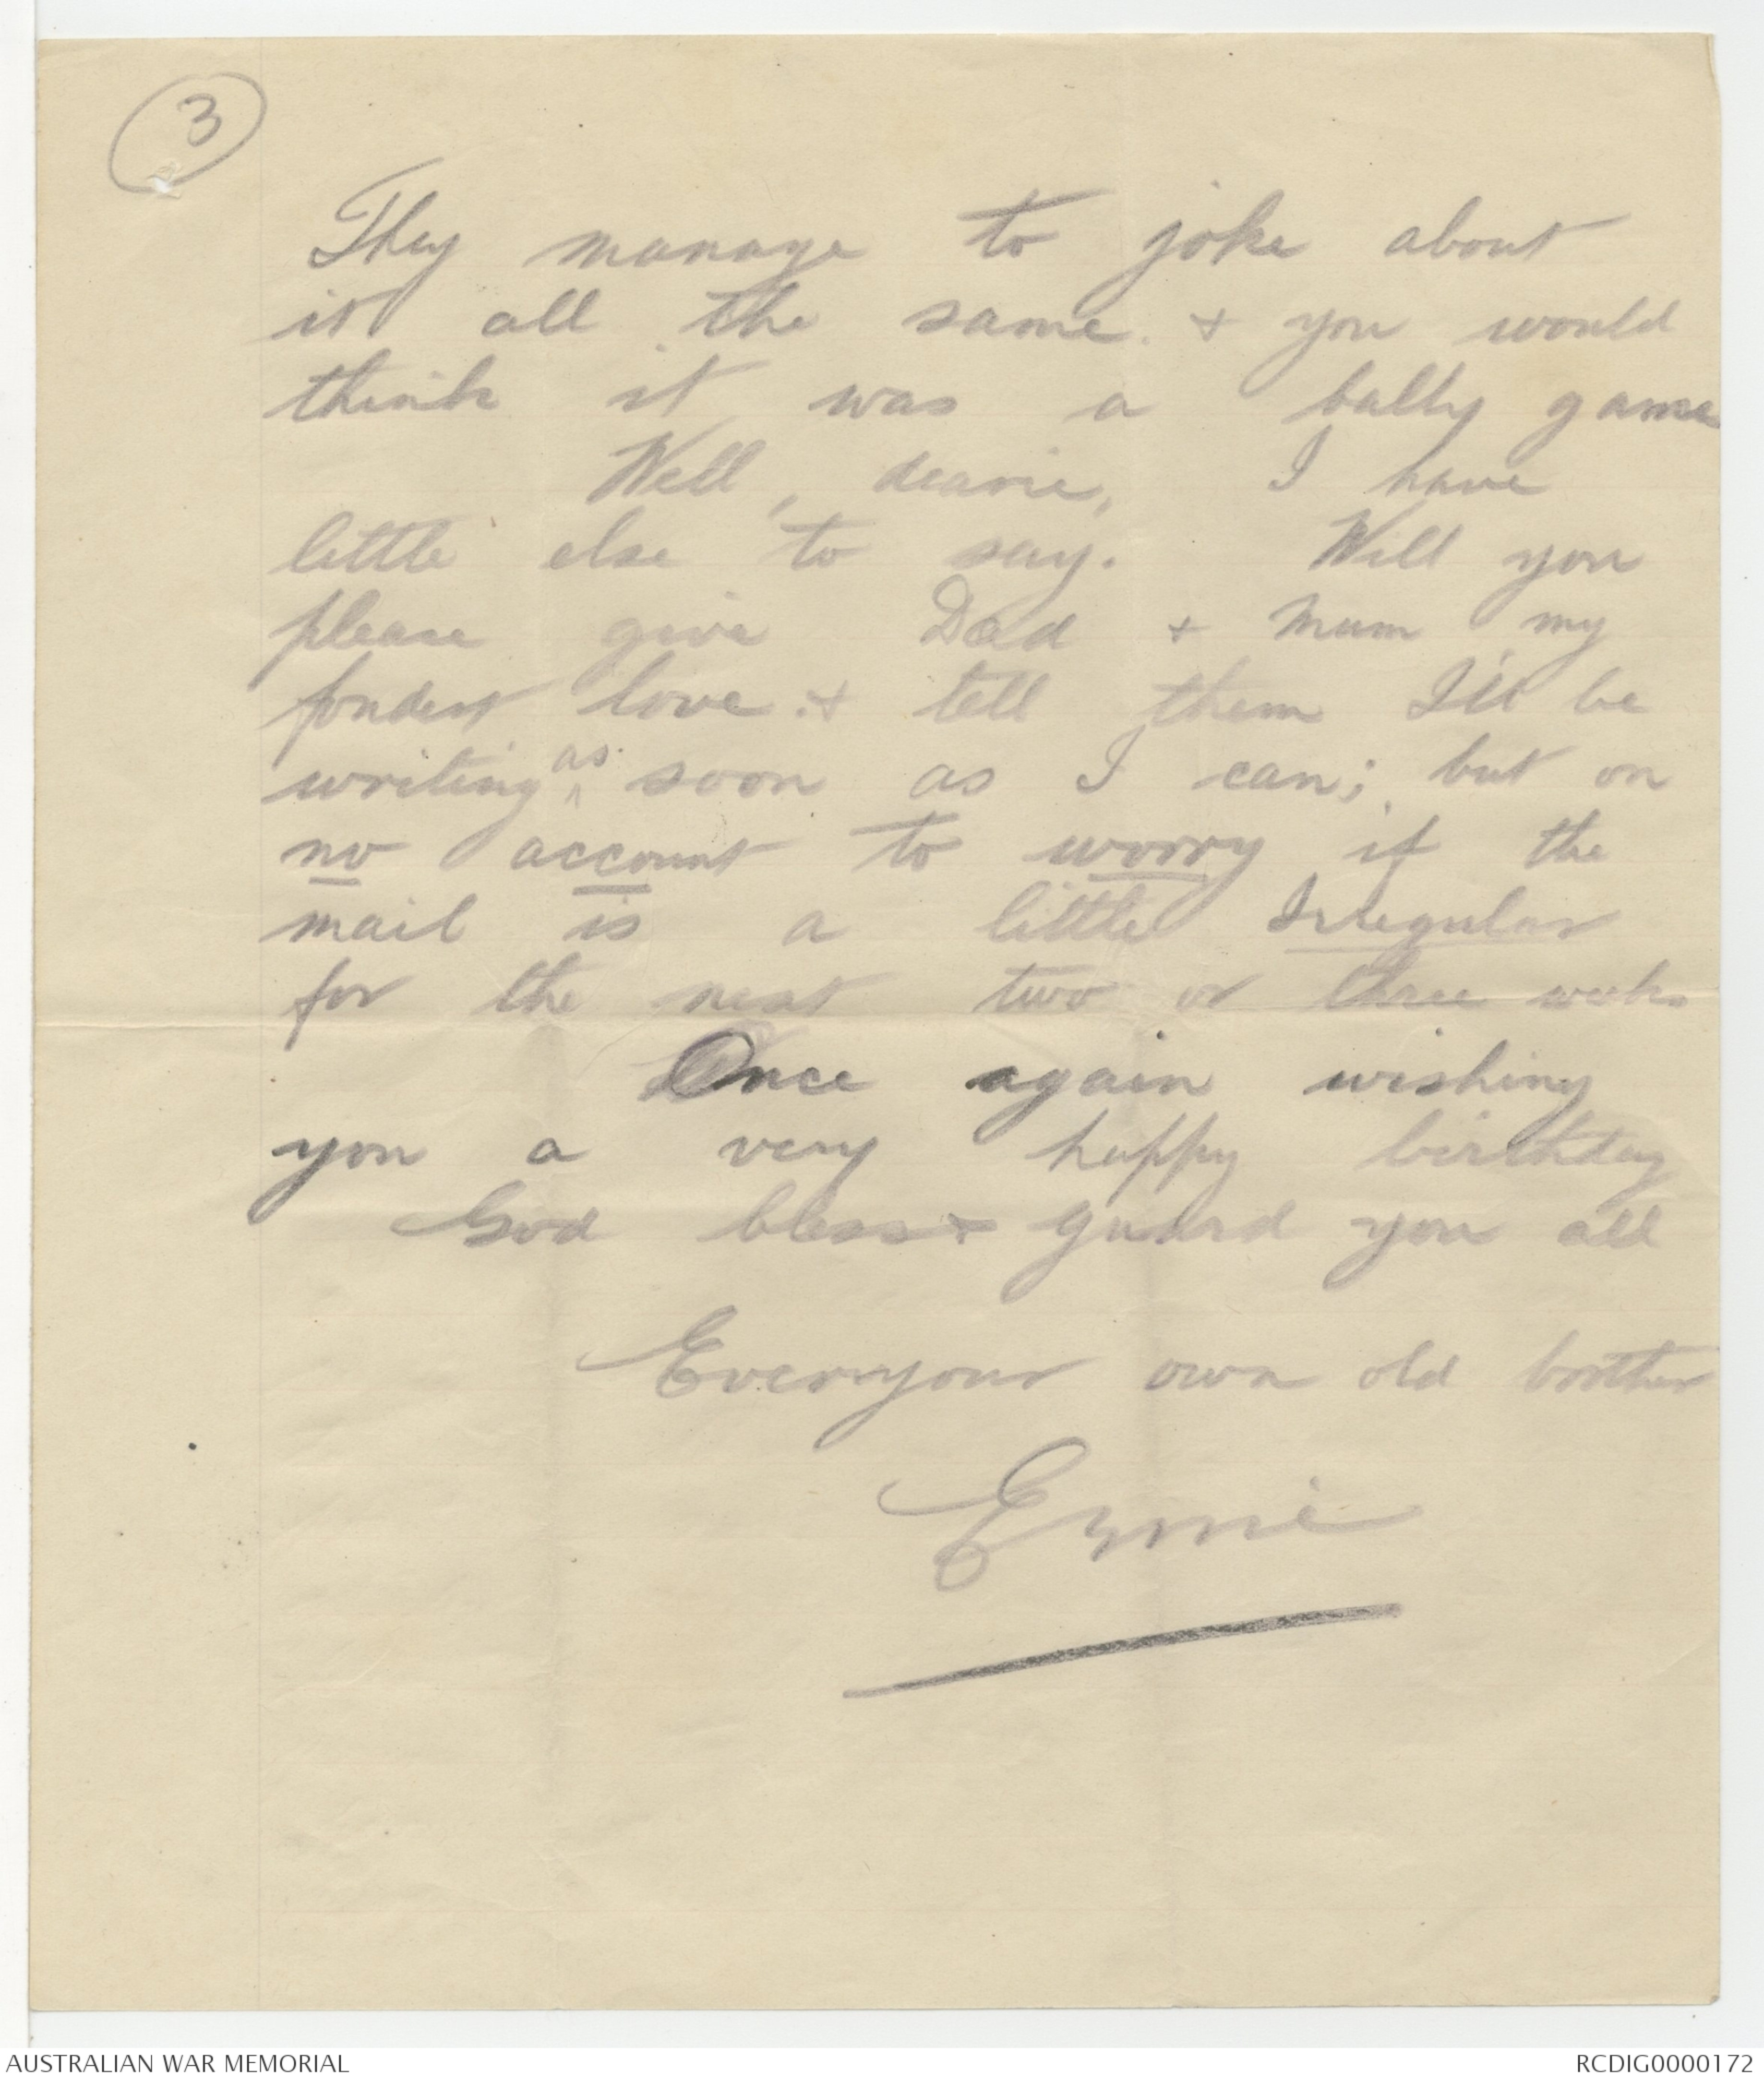 3
They manage to joke about
it all the same. & you would
think it was a bally game
Well, dearie, I have
little else to say. Will you
please give Dad & Mum my
fondest love. & tell them I'll be
writing as soon as I can; but on
no account to worry if the
mail is a little Irregular
for the next two or three weeks
Once again wishing
you a very happy birthday
God bless & guard you all
Ever your own old brother
Ernie
AUSTRALIAN WAR MEMORIAL
RCDIG0000172